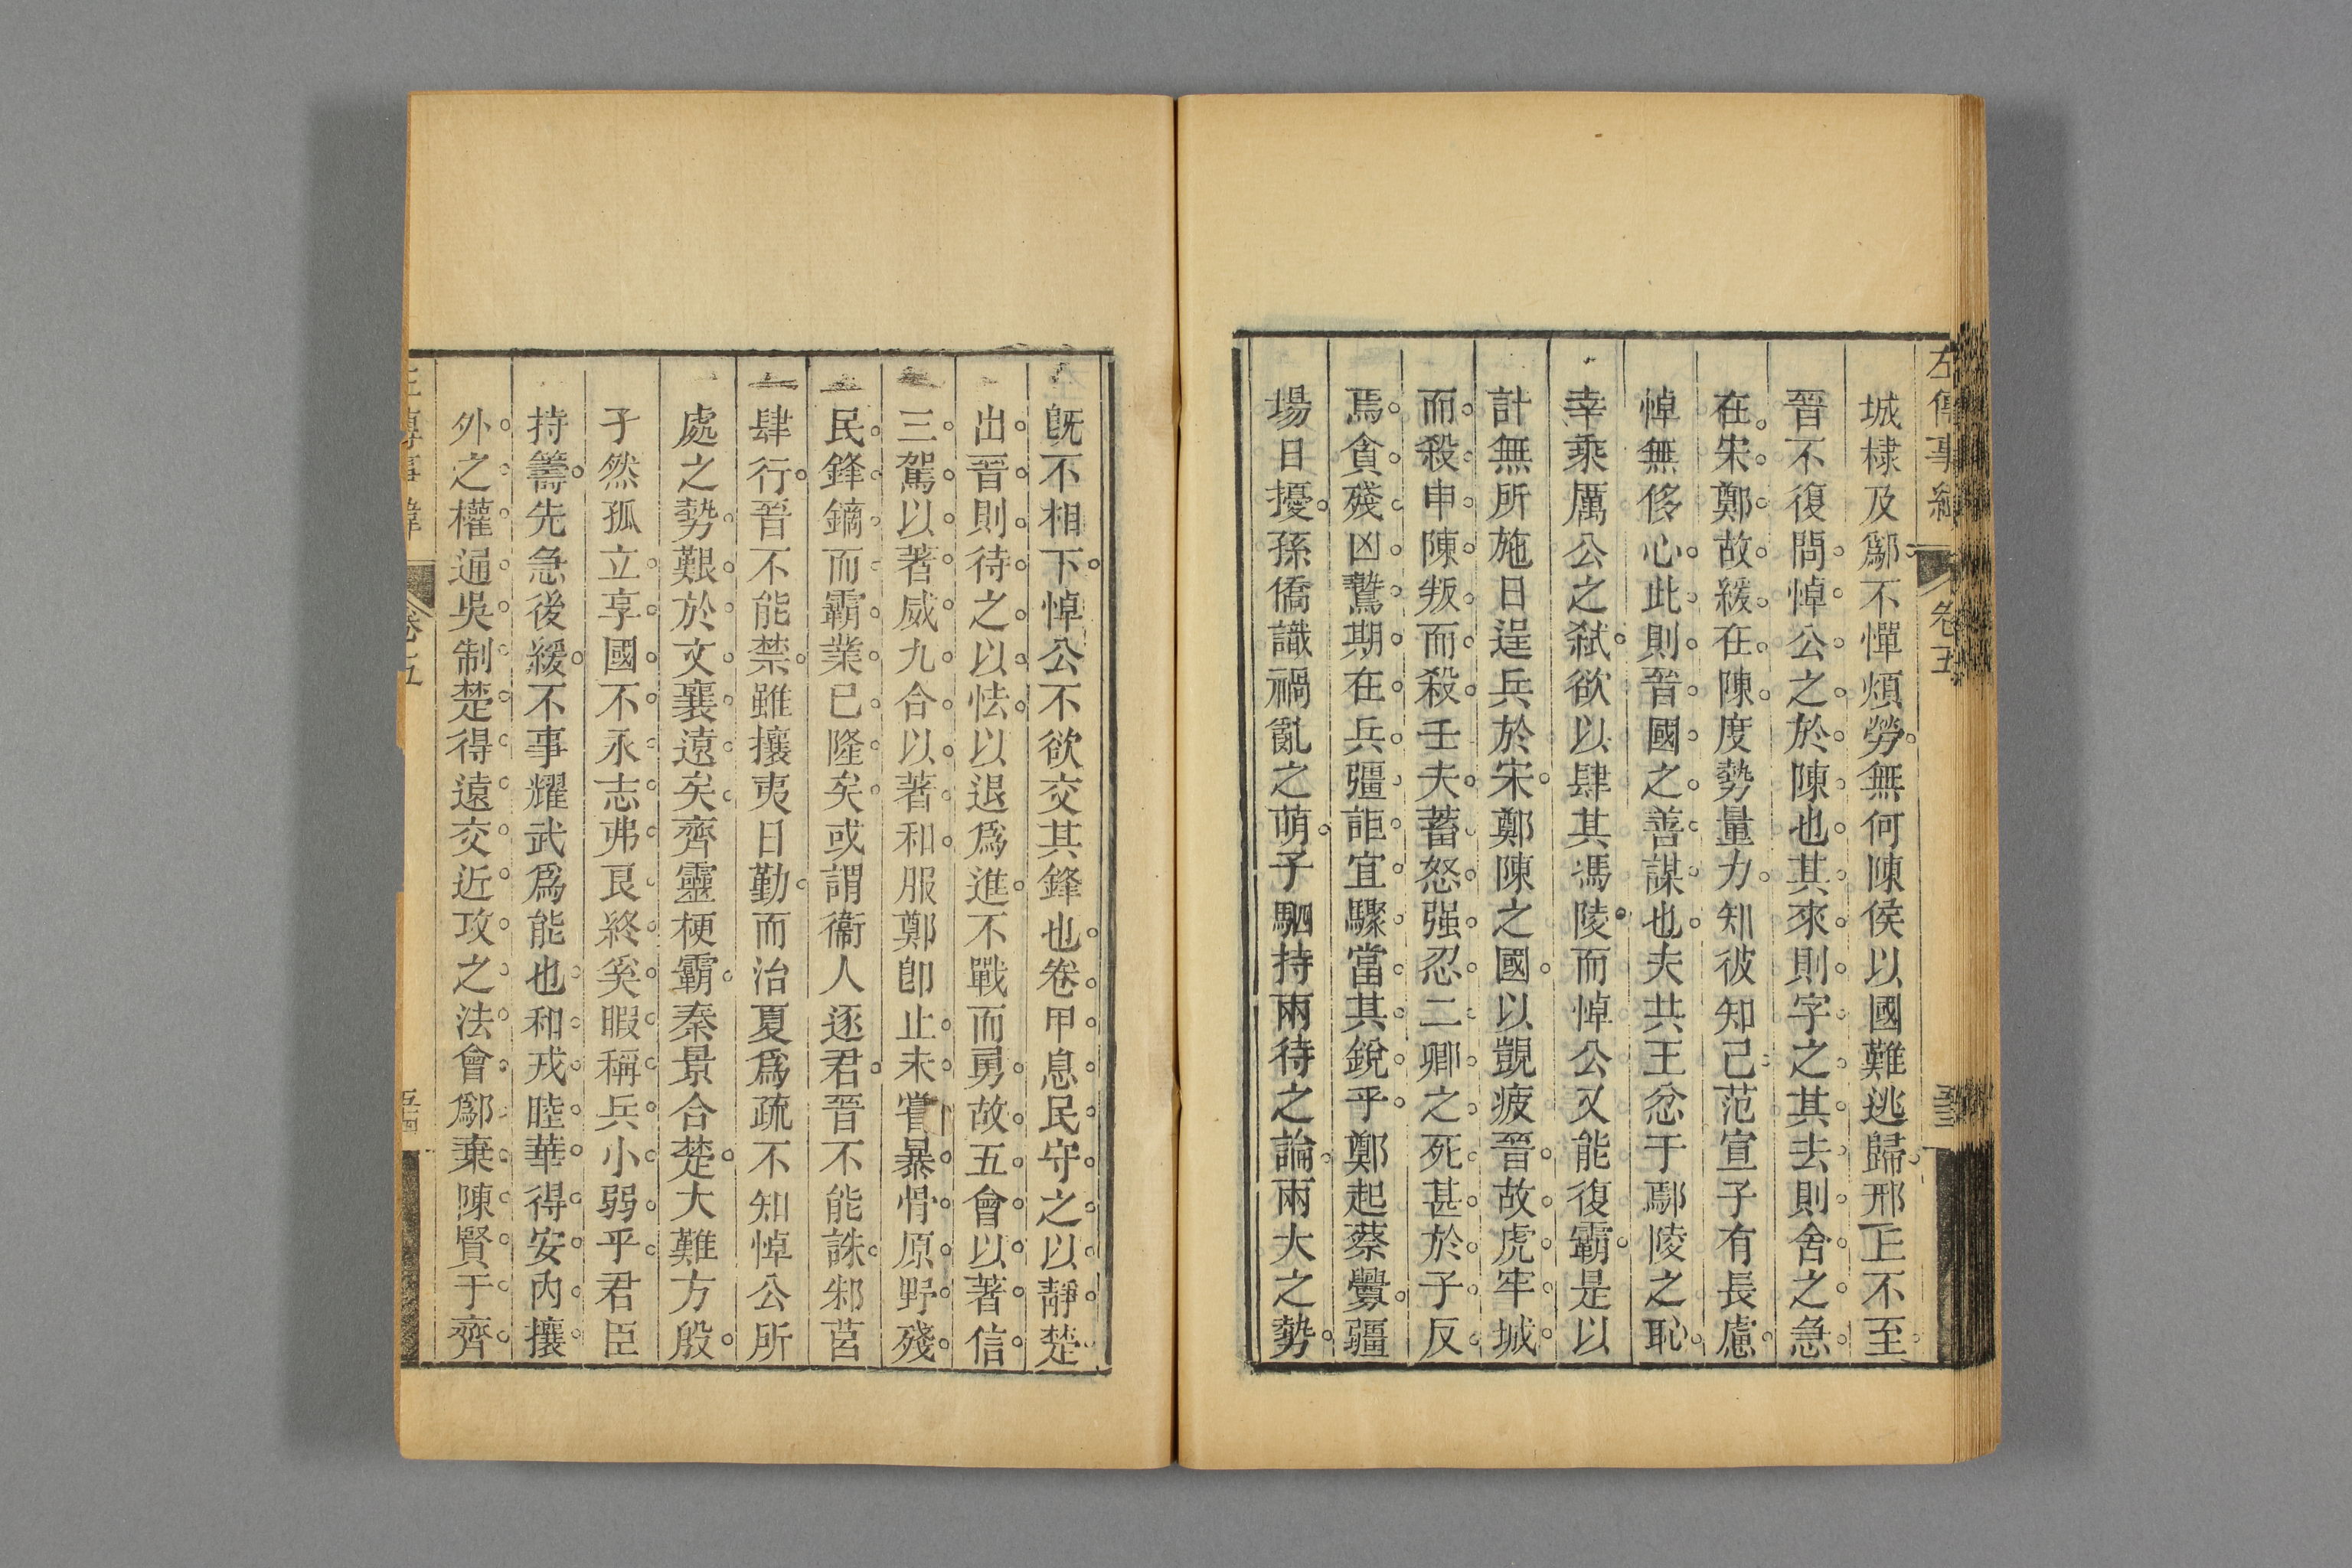 左傳事緯 卷五 五三
城棣及鄬不憚煩勞無何陳侯以國難逃歸邢丘不至
晉不復問悼公之於陳也其來則字之其去則舍之急
在宋鄭故緩在陳度勢量力知彼知己范宣子有長慮
悼無侈心此則晉國之善謀也夫共王忿于鄢陵之恥
幸乘厲公之弒欲以肆其馮陵而悼公又能復霸是以
計無所施日逞兵於宋鄭陳之國以覬疲晉故虎牢城
而殺申陳叛而殺壬夫蓄怒强忍二卿之死甚於子反
焉貪殘凶驁期在兵彊詎宜驟當其銳乎鄭起蔡釁疆
場日擾孫僑識禍亂之萌子駟持兩待之論兩大之勢
旣不相下悼公不欲交其鋒也卷甲息民守之以靜楚
出晉則待之以怯以退爲進不戰而勇故五會以著信
三駕以著威九合以著和服鄭卽止未嘗暴骨原野殘
民鋒鏑而霸業已隆矣或謂衞人逐君晉不能誅邾莒
肆行晉不能禁雖攘夷日勤而治夏爲疏不知悼公所
處之勢艱於文襄遠矣齊靈梗霸秦景合楚大難方殷
孑然孤立享國不永志弗良終奚暇稱兵小弱乎君臣
持籌先急後緩不事耀武爲能也和戎睦華得安內攘
外之權通吳制楚得遠交近攻之法會鄬棄陳賢于齊
左傳事緯 卷五 五四